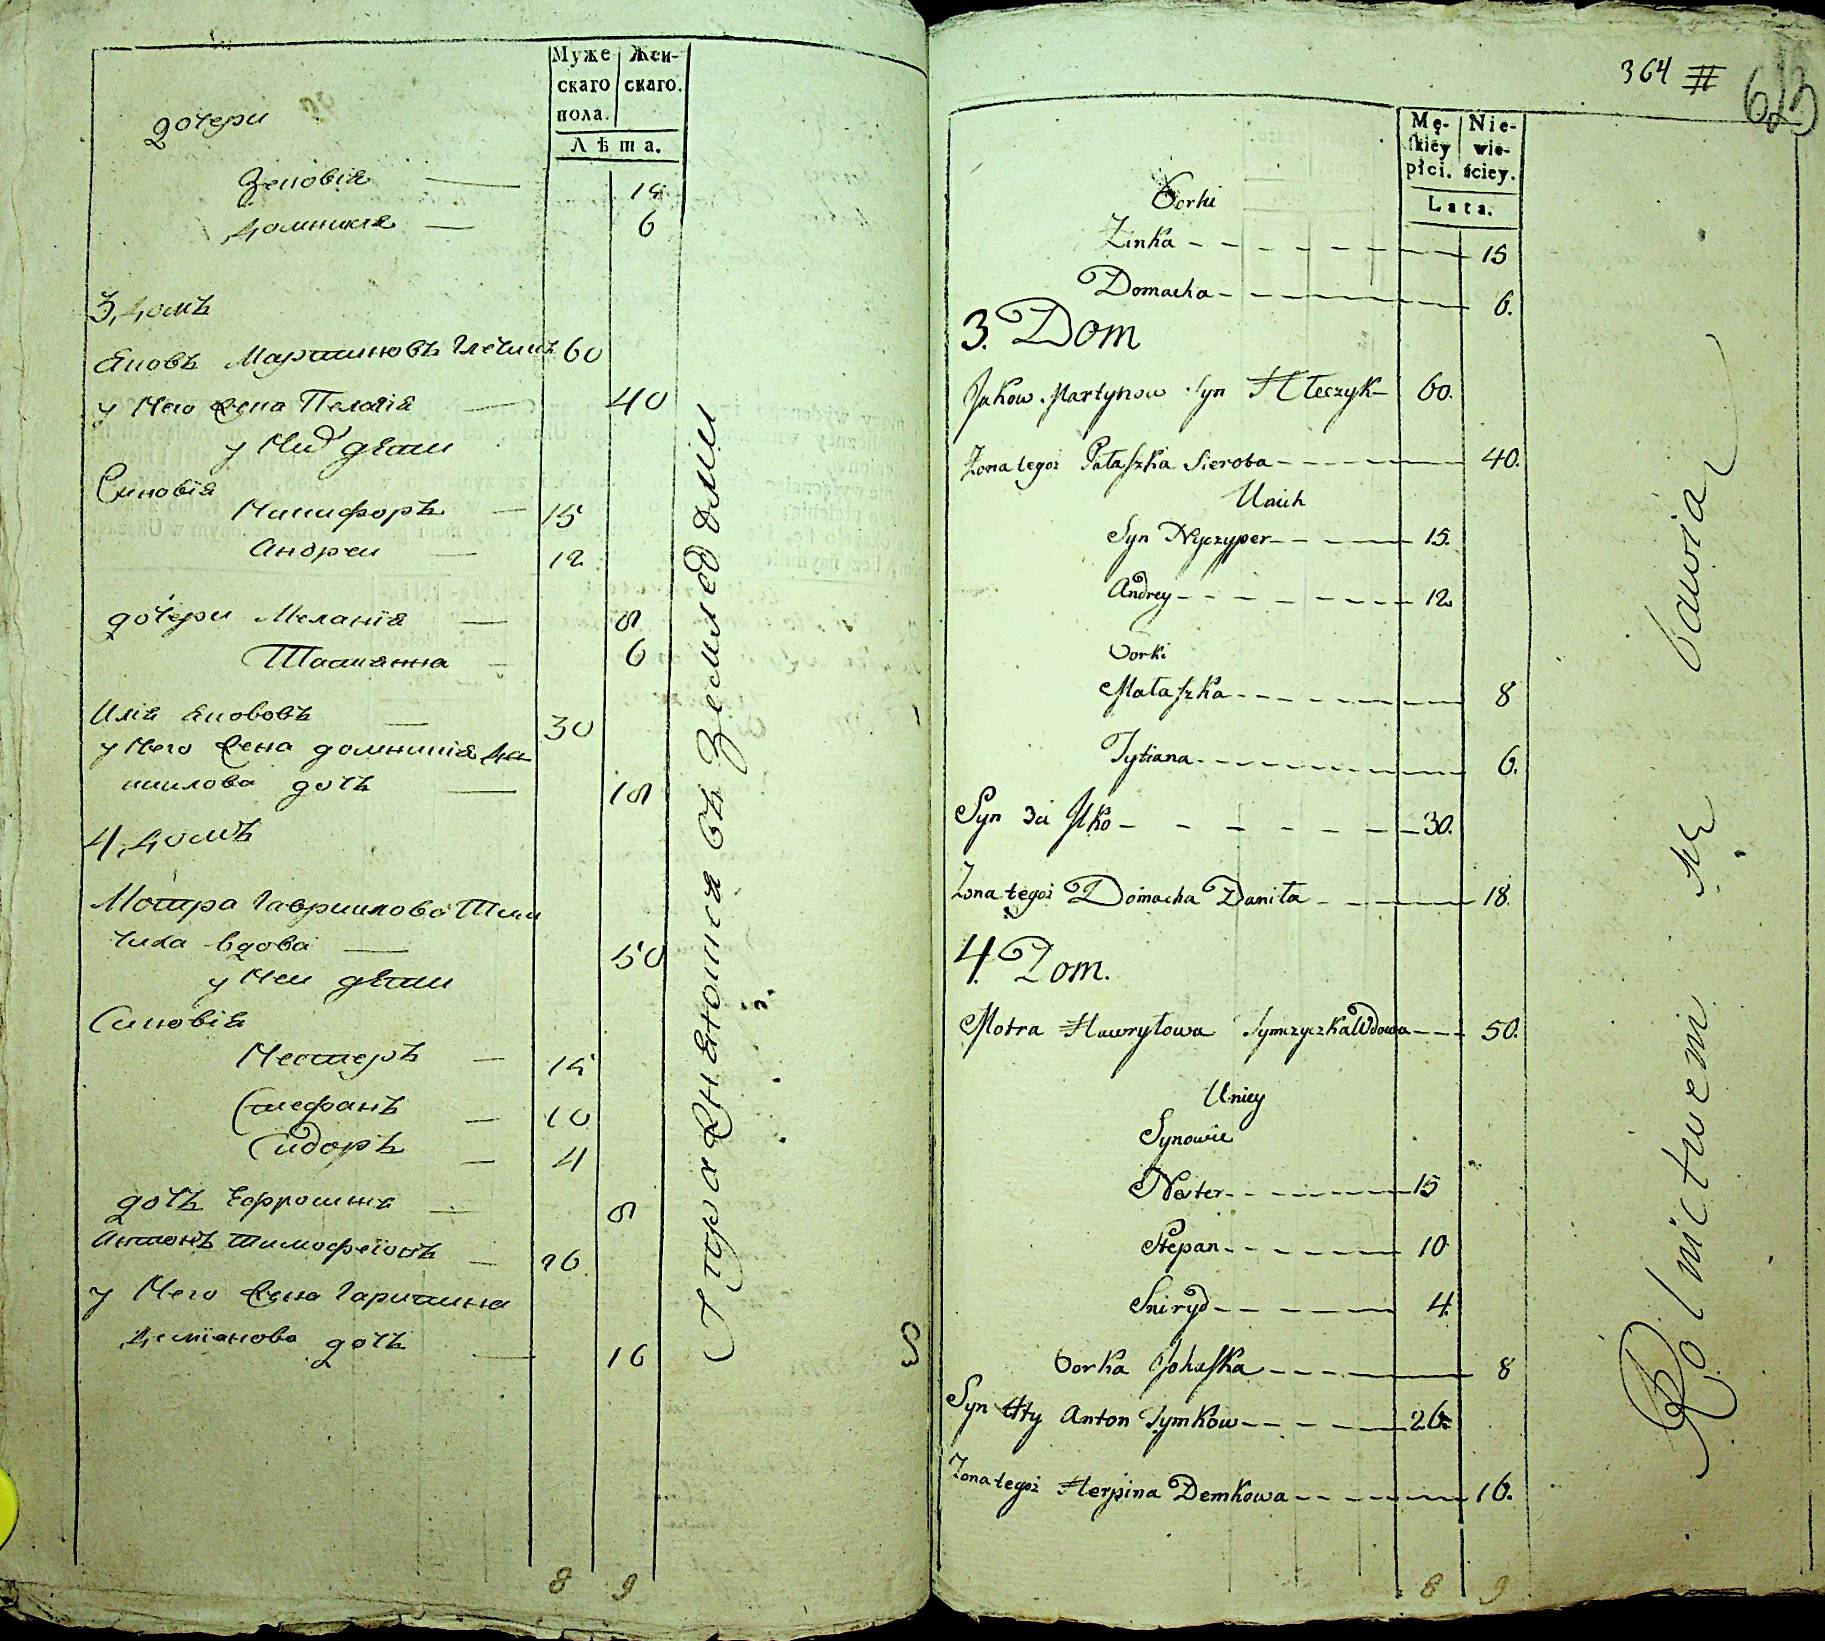 Муже Жен-
скаго скаго.
пола.
Лѣта.
дочери
Зеновія 15
домникія 6
3, домъ
Яковъ Мартиновъ Глечикъ 60
у него жена Пелагія 40
у них дѣти
Синовія
Никифоръ 15
Андреи 12
дочери Меланія 8
Татиянна 6
Илія Яковов 30
у него жена домникія Да
нилова дочь 18
4, домъ
Мотра Гавриилова Тим
чиха вдова 50
у неи дѣти
Синовія
Нестеръ 15
Стефанъ 10
Сидоръ 4
дочь Ефросинія 8
Антонъ Тимофеіовъ 26
у него жена Гарпинна
Демїанова дочь 16
Упражняются въ Земледѣліи
8 9
364 #
Mę- Nie-
skiey wie-
płci. ściey.
Lata.
Corki
Zinka 15
Domacha 6.
3. Dom
Jakow Martynow Syn Hleczyk 60.
Zona tegoż Pałaszka Sierota 40.
U nich
Syn Nyczyper 15.
Andrey 12
Corki
Małaszka 8
Tytiana 6.
Syn 3ci Jlko 30.
Zona tegoż Domacha Daniła 18.
4. Dom.
Motra Hawryłowa Tymczyczka Wdowa 50.
U niey
Synowie
Nester 15
Stepan 10
Swiryd 4.
Corka Johaszka 8
Syn 4ty Anton Tymkow 26.
Zona tegoż Herpina Demkowa 16.
Rolnictwem się bawią
8 9